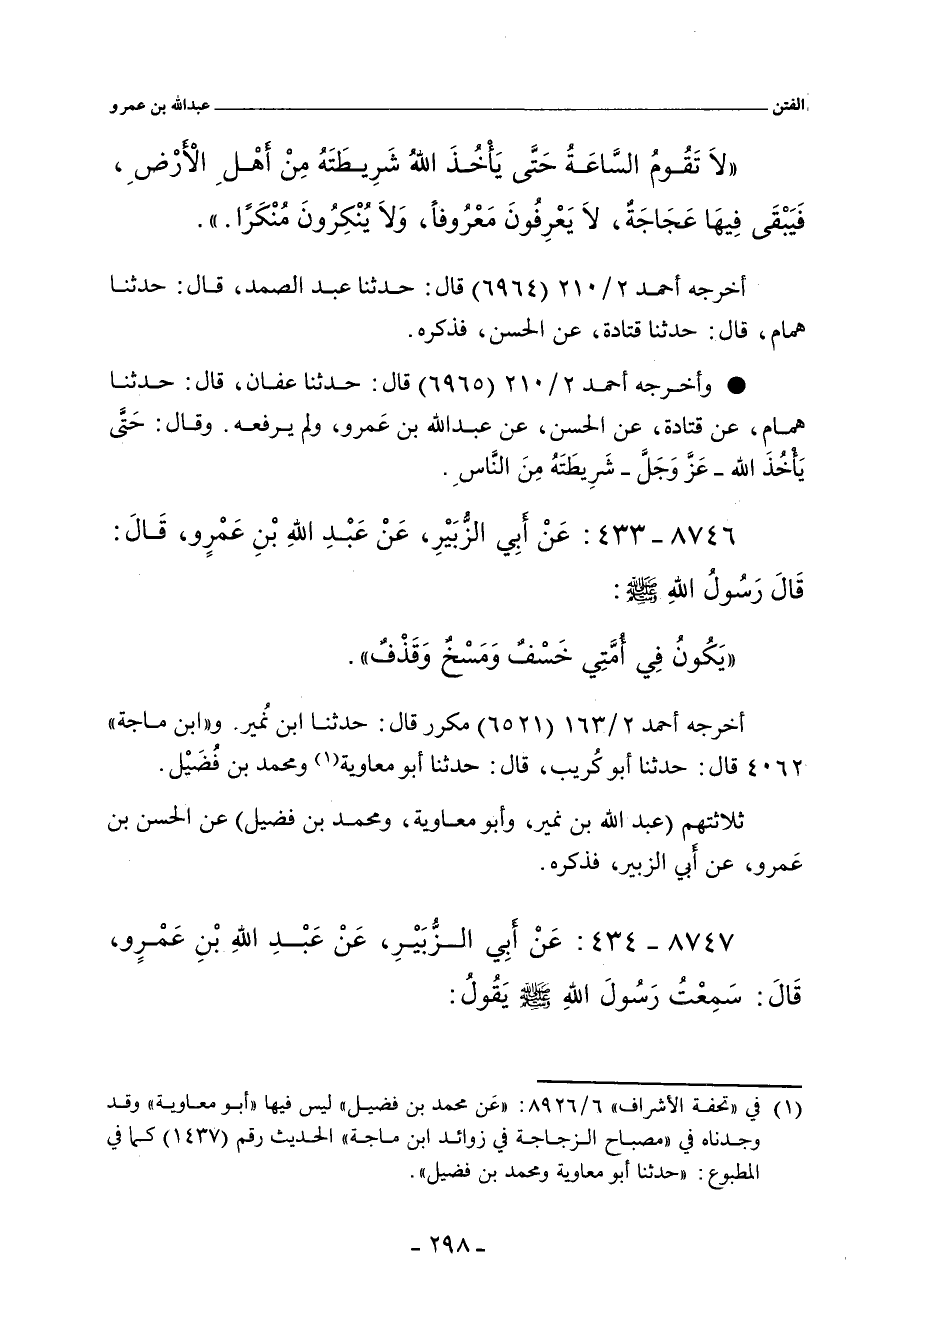 الفتن عبدالله بن عمرو
«لاَ تَقُومُ السَّاعَةُ حَتَّى يَأْخُذَ اللهُ شَرِيطَتَهُ مِنْ أَهْلِ الْأَرْضِ،
فَيَبْقَى فِيهَا عَجَاجَةٌ، لاَ يَعْرِفُونَ مَعْرُوفاً، وَلاَ يُنْكِرُونَ مُنْكَرًا.».
أخرجه أحمد ٢/ ٢١٠ (٦٩٦٤) قال: حدثنا عبد الصمد، قال: حدثنا
همام، قال: حدثنا قتادة، عن الحسن، فذكره.
● وأخرجه أحمد ٢/ ٢١٠ (٦٩٦٥) قال: حدثنا عفان، قال: حدثنا
همام، عن قتادة، عن الحسن، عن عبدالله بن عمرو، ولم يرفعه. وقال: حَتَّى
يَأْخُذَ الله ـ عَزَّ وَجَلَّ ـ شَرِيطَتَهُ مِنَ النَّاسِ.
٨٧٤٦ ـ ٤٣٣: عَنْ أَبِي الزُّبَيْرِ، عَنْ عَبْدِ اللهِ بْنِ عَمْرٍو، قَالَ:
قَالَ رَسُولُ اللهِ ﷺ:
«يَكُونُ فِي أُمَّتِي خَسْفٌ وَمَسْخٌ وَقَذْفٌ».
أخرجه أحمد ٢/ ١٦٣ (٦٥٢١) مكرر قال: حدثنا ابن نُمير. و«ابن ماجة»
٤٠٦٢ قال: حدثنا أبو كُريب، قال: حدثنا أبو معاوية(١) ومحمد بن فُضَيْل.
ثلاثتهم (عبد الله بن نمير، وأبو معاوية، ومحمد بن فضيل) عن الحسن بن
عَمرو، عن أَبي الزبير، فذكره.
٨٧٤٧ ـ ٤٣٤: عَنْ أَبِي الزُّبَيْرِ، عَنْ عَبْدِ اللهِ بْنِ عَمْرٍو،
قَالَ: سَمِعْتُ رَسُولَ اللهِ ﷺ يَقُولُ:
(١) في «تحفة الأشراف» ٦/ ٨٩٢٦: «عَن محمد بن فضيل» ليس فيها «أبو معاوية» وقد
وجدناه في «مصباح الزجاجة في زوائد ابن ماجة» الحديث رقم (١٤٣٧) كما في
المطبوع: «حدثنا أبو معاوية ومحمد بن فضيل».
ـ ٢٩٨ ـ